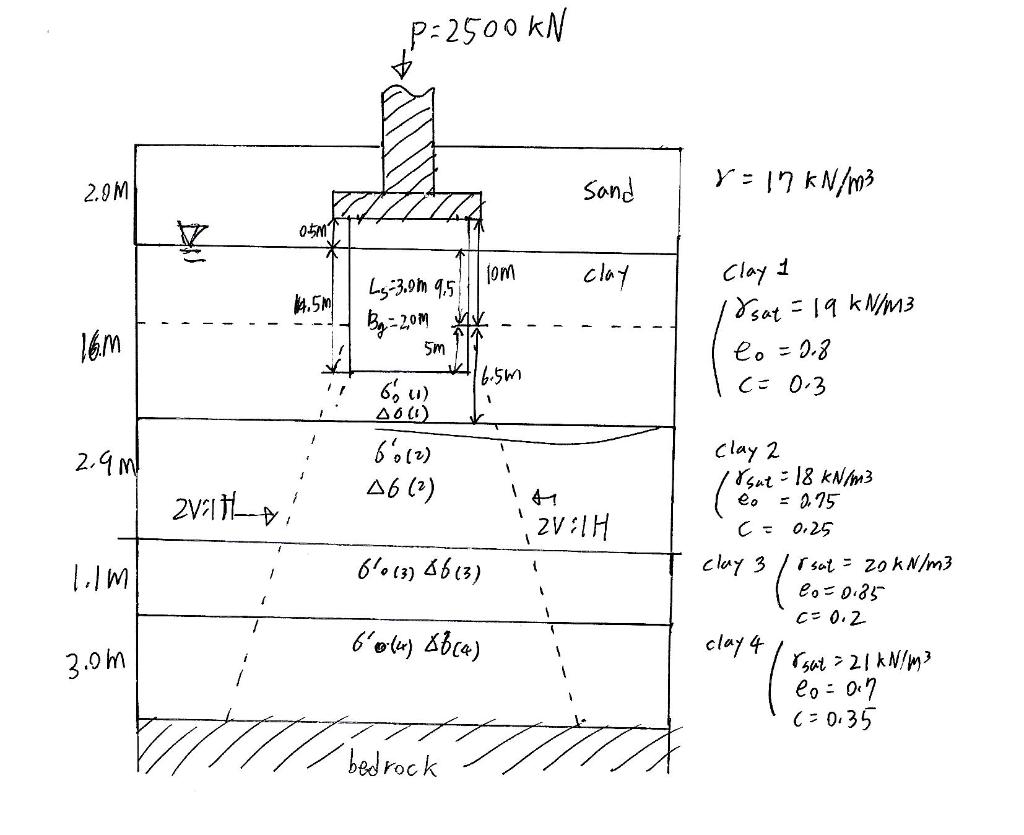 P=2500 kN
2.0M
Sand
γ = 17 kN/m3
0.5m
10m
clay
Ls=3.0m
9.5
14.5m
Bg=2.0m
16M
5m
6.5m
clay 1
γsat = 19 kN/m3
e0 = 0.8
c = 0.3
6'0 (1)
Δ6 (1)
2.9m
6'0 (2)
Δ6 (2)
clay 2
γsat = 18 kN/m3
e0 = 0.75
c = 0.25
2V:1H
2V:1H
1.1m
6'0(3) Δ6(3)
clay 3
γsat = 20 kN/m3
e0 = 0.85
c = 0.2
3.0m
6'0(4) Δ6(4)
clay 4
γsat = 21 kN/m3
e0 = 0.7
c = 0.35
bedrock